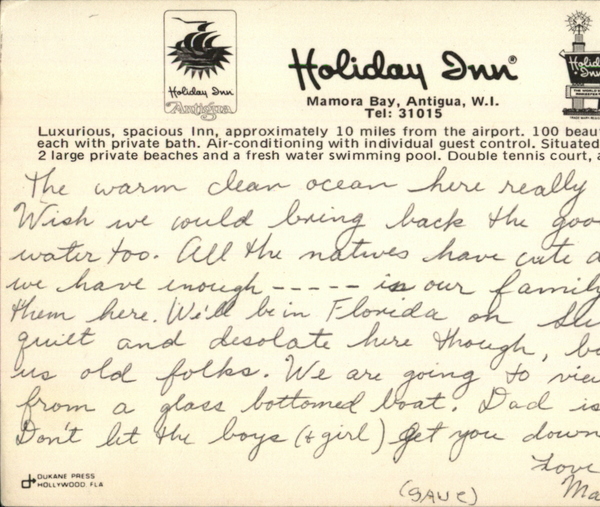 Holiday Inn
Antigua
Holiday Inn®
Mamora Bay, Antigua, W.I.
Tel: 31015
Holiday Inn
Luxurious, spacious Inn, approximately 10 miles from the airport. 100 beau
each with private bath. Air-conditioning with individual guest control. Situated
2 large private beaches and a fresh water swimming pool. Double tennis court, a
The warm clean ocean here really
Wish we could bring back the goo
water too. All the natives have cute
we have enough ----- in our family
them here. We'll be in Florida on
quiet and desolate here though, b
us old folks. We are going to vie
from a glass bottomed boat. Dad is
Don't let the boys (+ girl) get you down
Love
Ma
DUKANE PRESS
HOLLYWOOD, FLA
(SAVE)